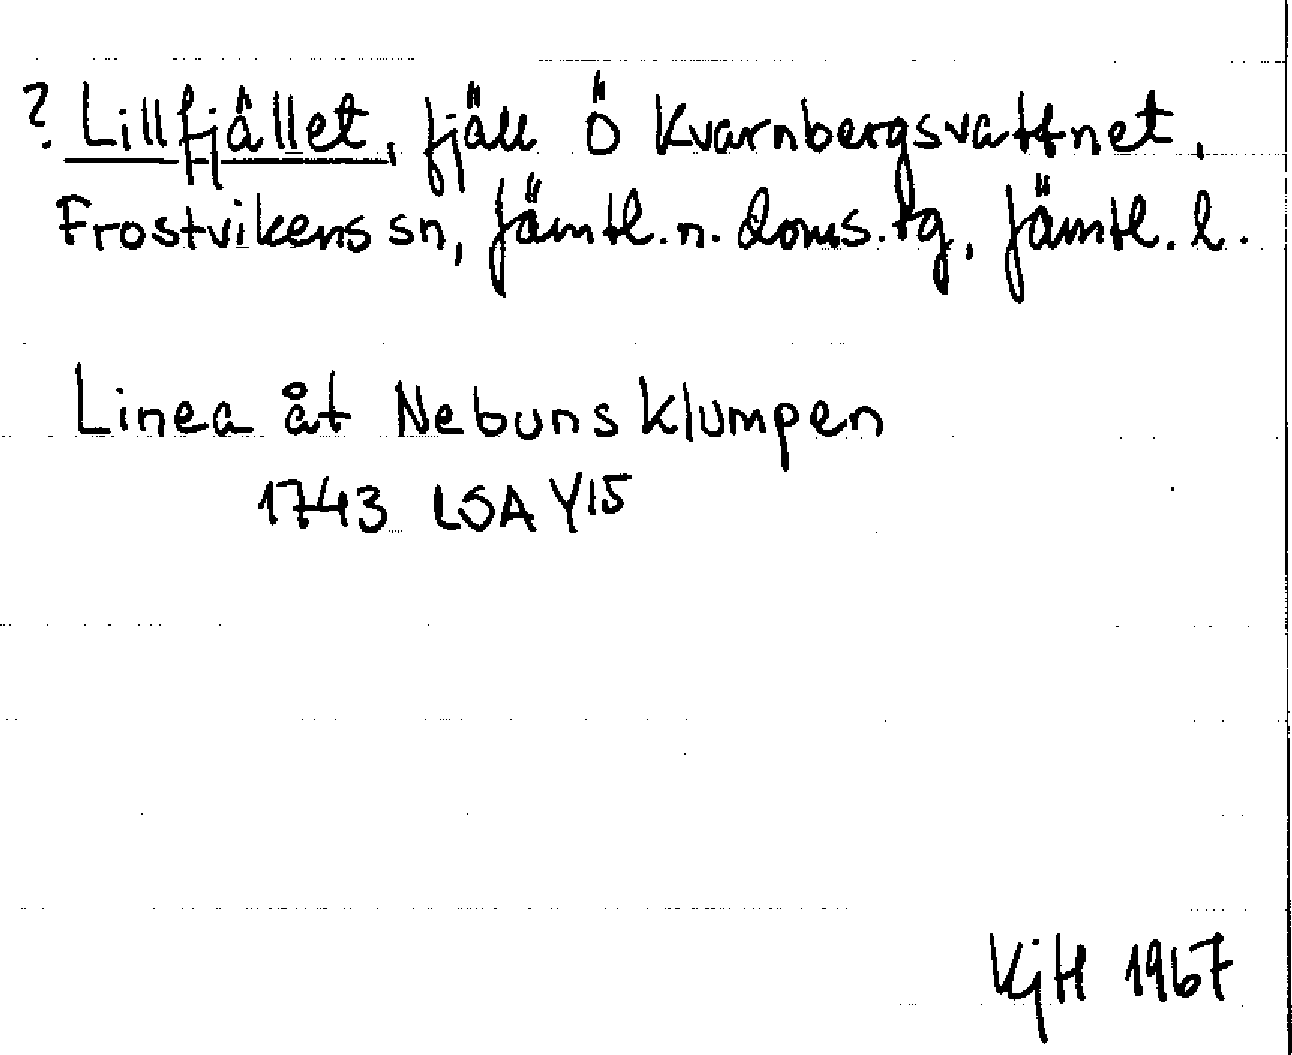 ? Lillfjället, fjäll Ö Kvarnbergsvattnet,
Frostvikens sn, Jämtl. n. doms. tg, Jämtl. l.
Linea åt Nebuns klumpen
1743 LSA Y15
KjH 1967